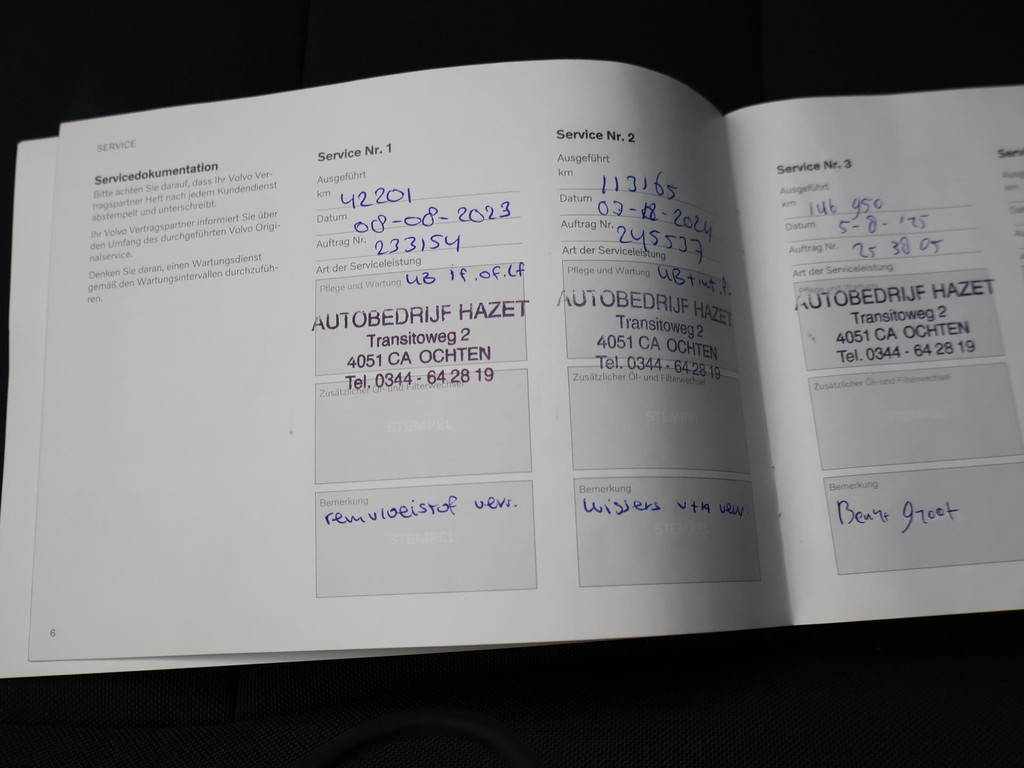 SERVICE
Servicedokumentation
Bitte achten Sie darauf, dass Ihr Volvo Ver-
tragspartner Heft nach jedem Kundendienst
abstempelt und unterschreibt.
Ihr Volvo Vertragspartner informiert Sie über
den Umfang des durchgeführten Volvo Origi-
nalservice.
Denken Sie daran, einen Wartungsdienst
gemäß den Wartungsintervallen durchzufüh-
ren.
6
Service Nr. 1
Ausgeführt
km 42201
Datum 08-08-2023
Auftrag Nr. 233154
Art der Serviceleistung
Pflege und Wartung
AUTOBEDRIJF HAZET
Transitoweg 2
4051 CA OCHTEN
Tel. 0344 - 64 28 19
Zusätzlicher Öl- und Filterwechsel
STEMPEL
Bemerkung
remvloeistof verv.
STEMPEL
Service Nr. 2
Ausgeführt
km 113165
Datum
Auftrag Nr. 245537
Art der Serviceleistung
Pflege und Wartung
AUTOBEDRIJF HAZET
Transitoweg 2
4051 CA OCHTEN
Tel. 0344 - 64 28 19
Zusätzlicher Öl- und Filterwechsel
STEMPEL
Bemerkung
wissers
STEMPEL
Service Nr. 3
Ausgeführt
km 146 950
Datum 5-8-'25
Auftrag Nr. 25 38 05
Art der Serviceleistung
Pflege und Wartung
AUTOBEDRIJF HAZET
Transitoweg 2
4051 CA OCHTEN
Tel. 0344 - 64 28 19
Zusätzlicher Öl- und Filterwechsel
Bemerkung
groot